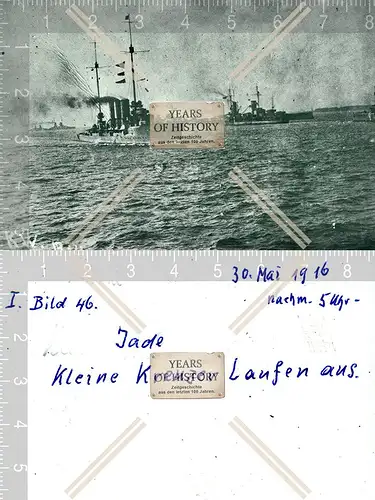 1 2 3 4 5 6 7 8
YEARS
OF HISTORY
Zeitgeschichte
aus den letzten 100 Jahren.
1 2 3 4 5 6 7 8
30. Mai 1916
I. Bild 46.
nachm. 5 Uhr-
Jade
Kleine Laufen aus.
YEARS
OF HISTORY
Zeitgeschichte
aus den letzten 100 Jahren.
1
2
3
4
5